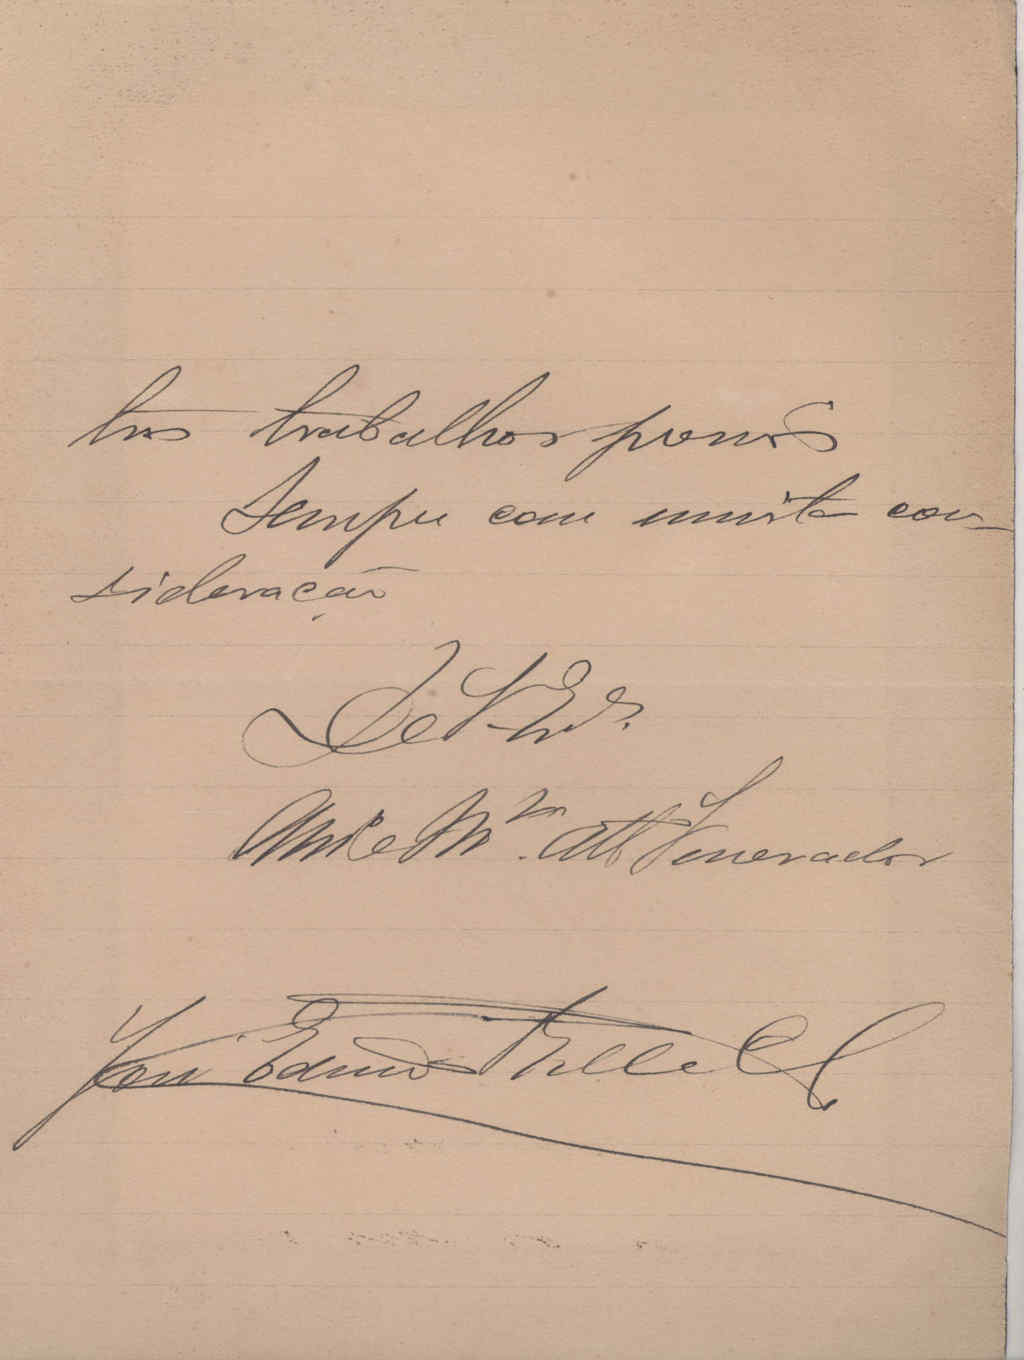 tros trabalhos
Sempre com muita con-
sideração
De V. Ex.
Am.º e Mto. Att Venerador
José Eduardo